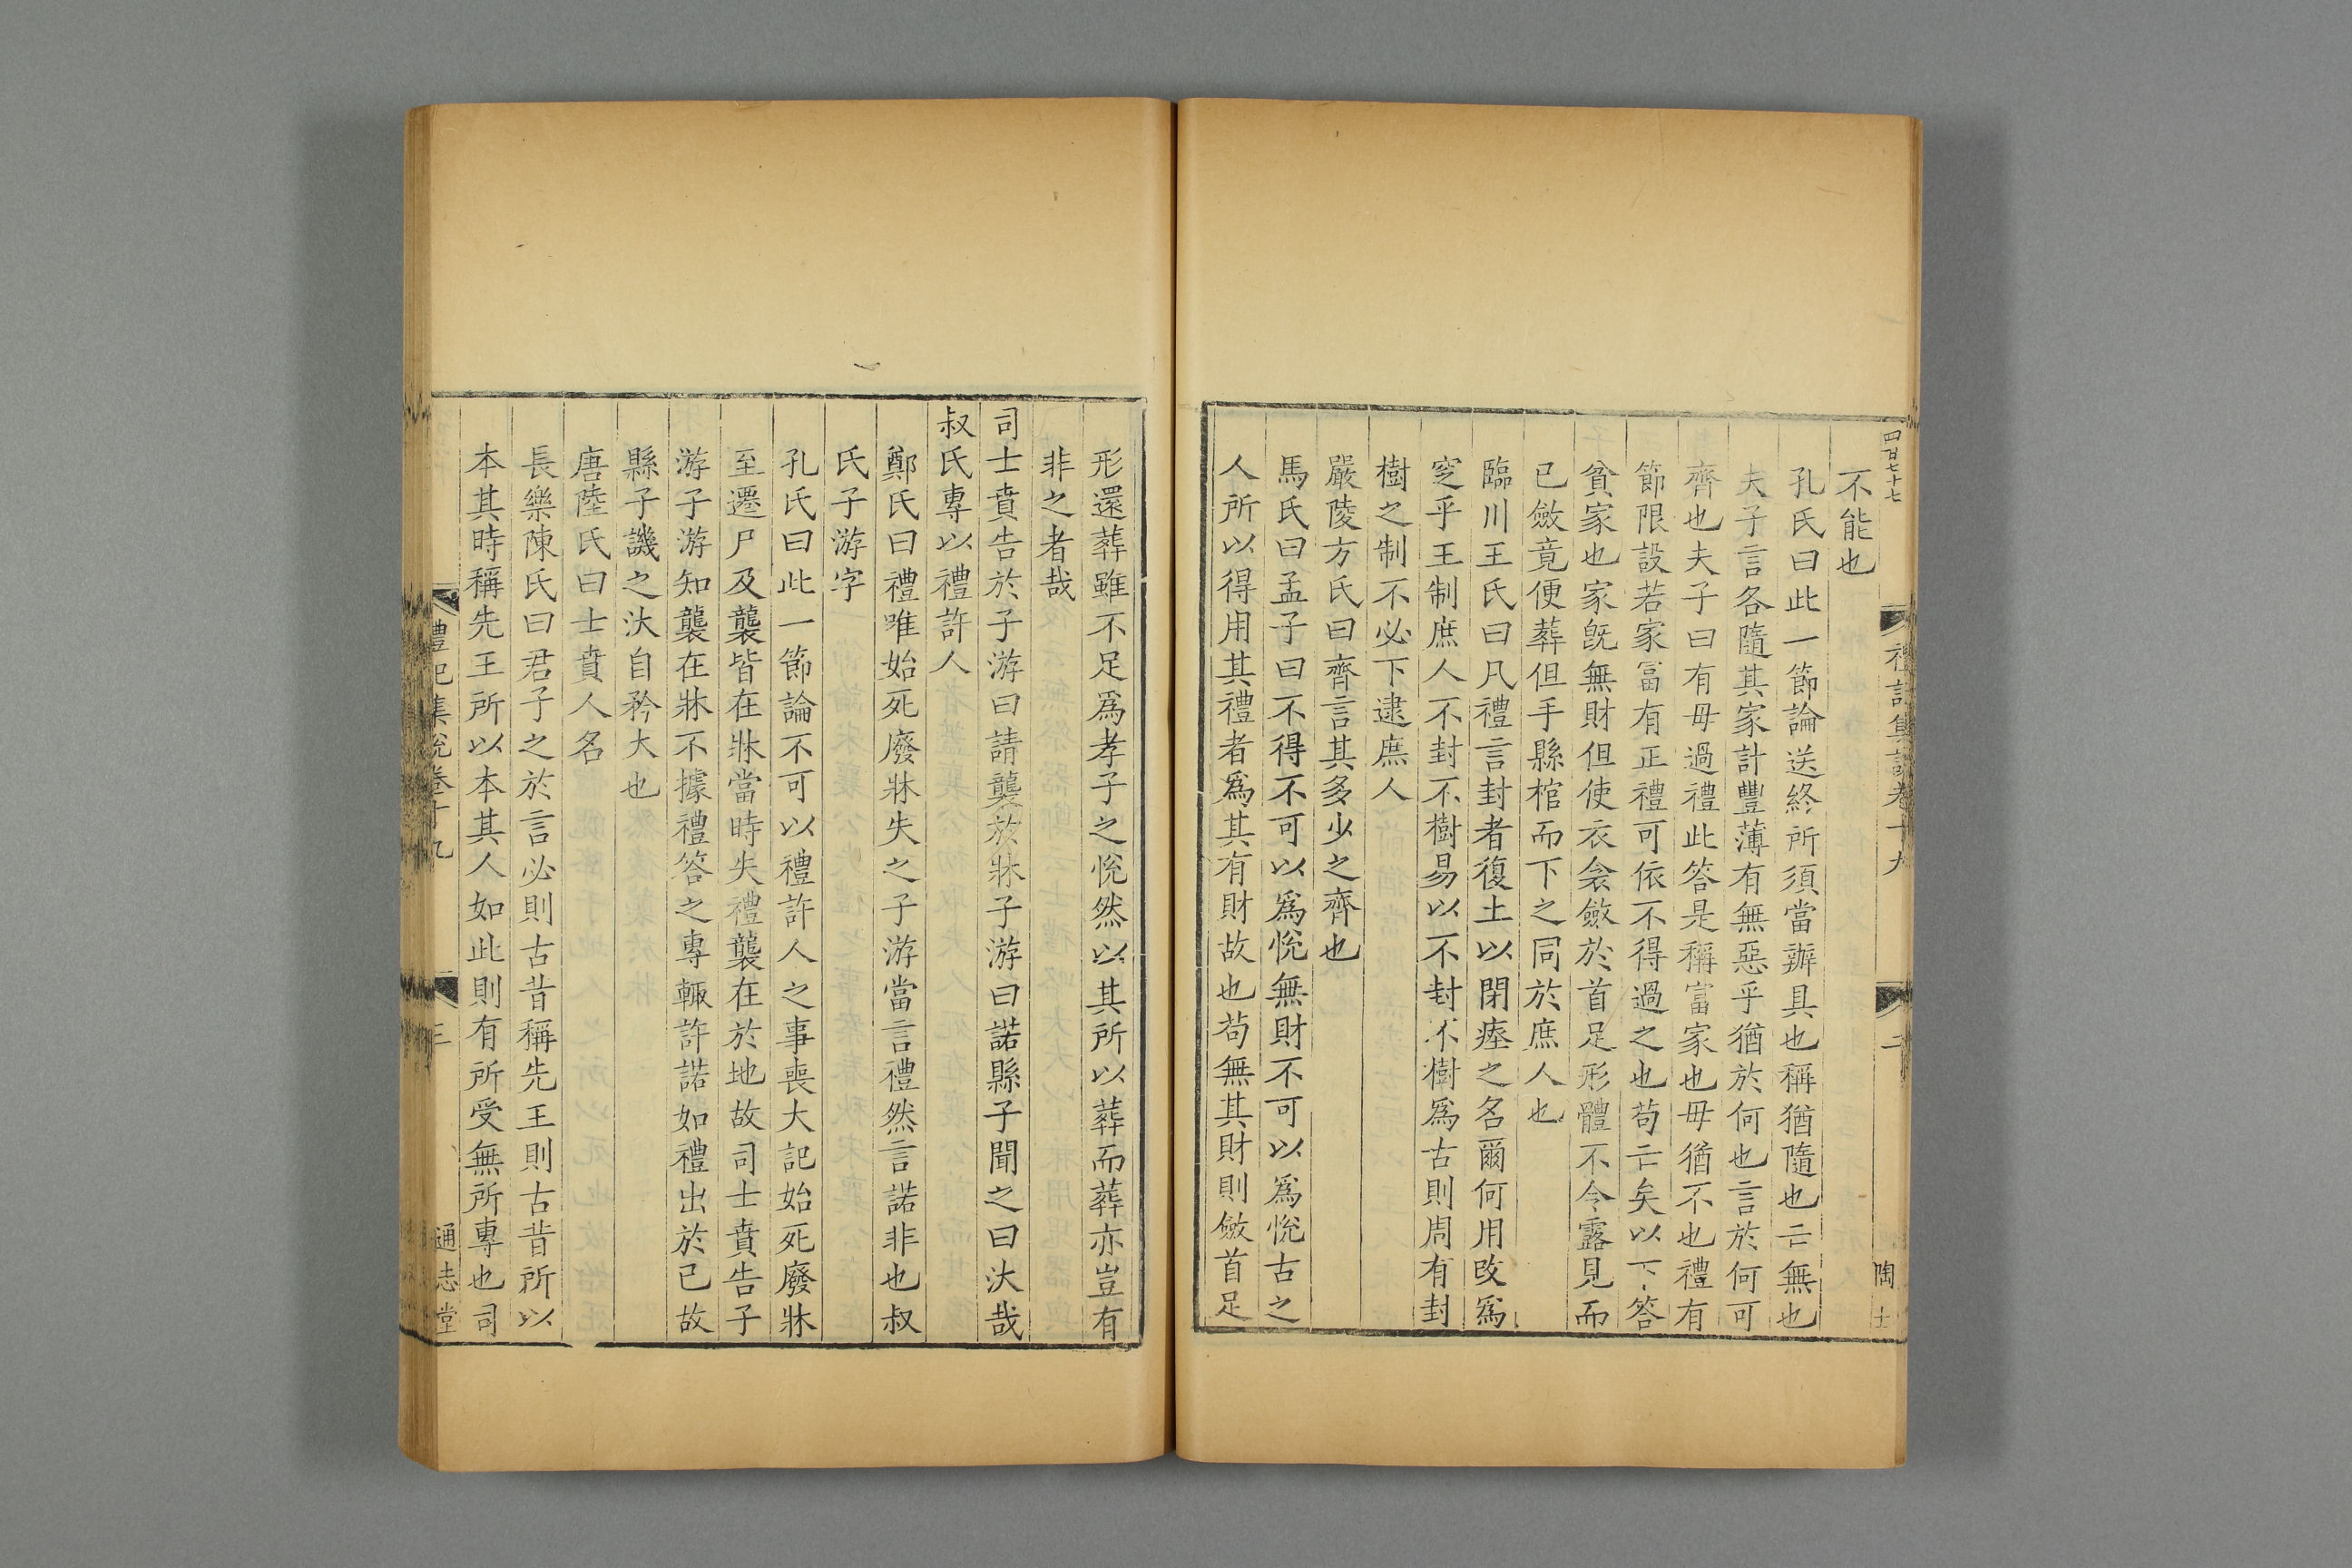 四百七十七
禮記集說卷十九
二
陶士
不能也
孔氏曰此一節論送終所須當辦具也稱猶隨也亡無也
夫子言各隨其家計豐薄有無惡乎猶於何也言於何可
齊也夫子曰有毋過禮此答是稱富家也毋猶不也禮有
節限設若家富有正禮可依不得過之也苟亡矣以下答
貧家也家旣無財但使衣衾斂於首足形體不令露見而
已斂竟便葬但手縣棺而下之同於庶人也
臨川王氏曰凡禮言封者復土以閉瘞之名爾何用改爲
窆乎王制庶人不封不樹易以不封不樹爲古則周有封
樹之制不必下逮庶人
嚴陵方氏曰齊言其多少之齊也
馬氏曰孟子曰不得不可以爲悅無財不可以爲悅古之
人所以得用其禮者爲其有財故也苟無其財則斂首足
形還葬雖不足爲孝子之悅然以其所以葬而葬亦豈有
非之者哉
司士賁告於子游曰請襲於牀子游曰諾縣子聞之曰汏哉
叔氏專以禮許人
鄭氏曰禮唯始死廢牀失之子游當言禮然言諾非也叔
氏子游字
孔氏曰此一節論不可以禮許人之事喪大記始死廢牀
至遷尸及襲皆在牀當時失禮襲在於地故司士賁告子
游子游知襲在牀不據禮答之專輒許諾如禮出於己故
縣子譏之汏自矜大也
唐陸氏曰士賁人名
長樂陳氏曰君子之於言必則古昔稱先王則古昔所以
本其時稱先王所以本其人如此則有所受無所專也司
禮記集說卷十九
三
通志堂